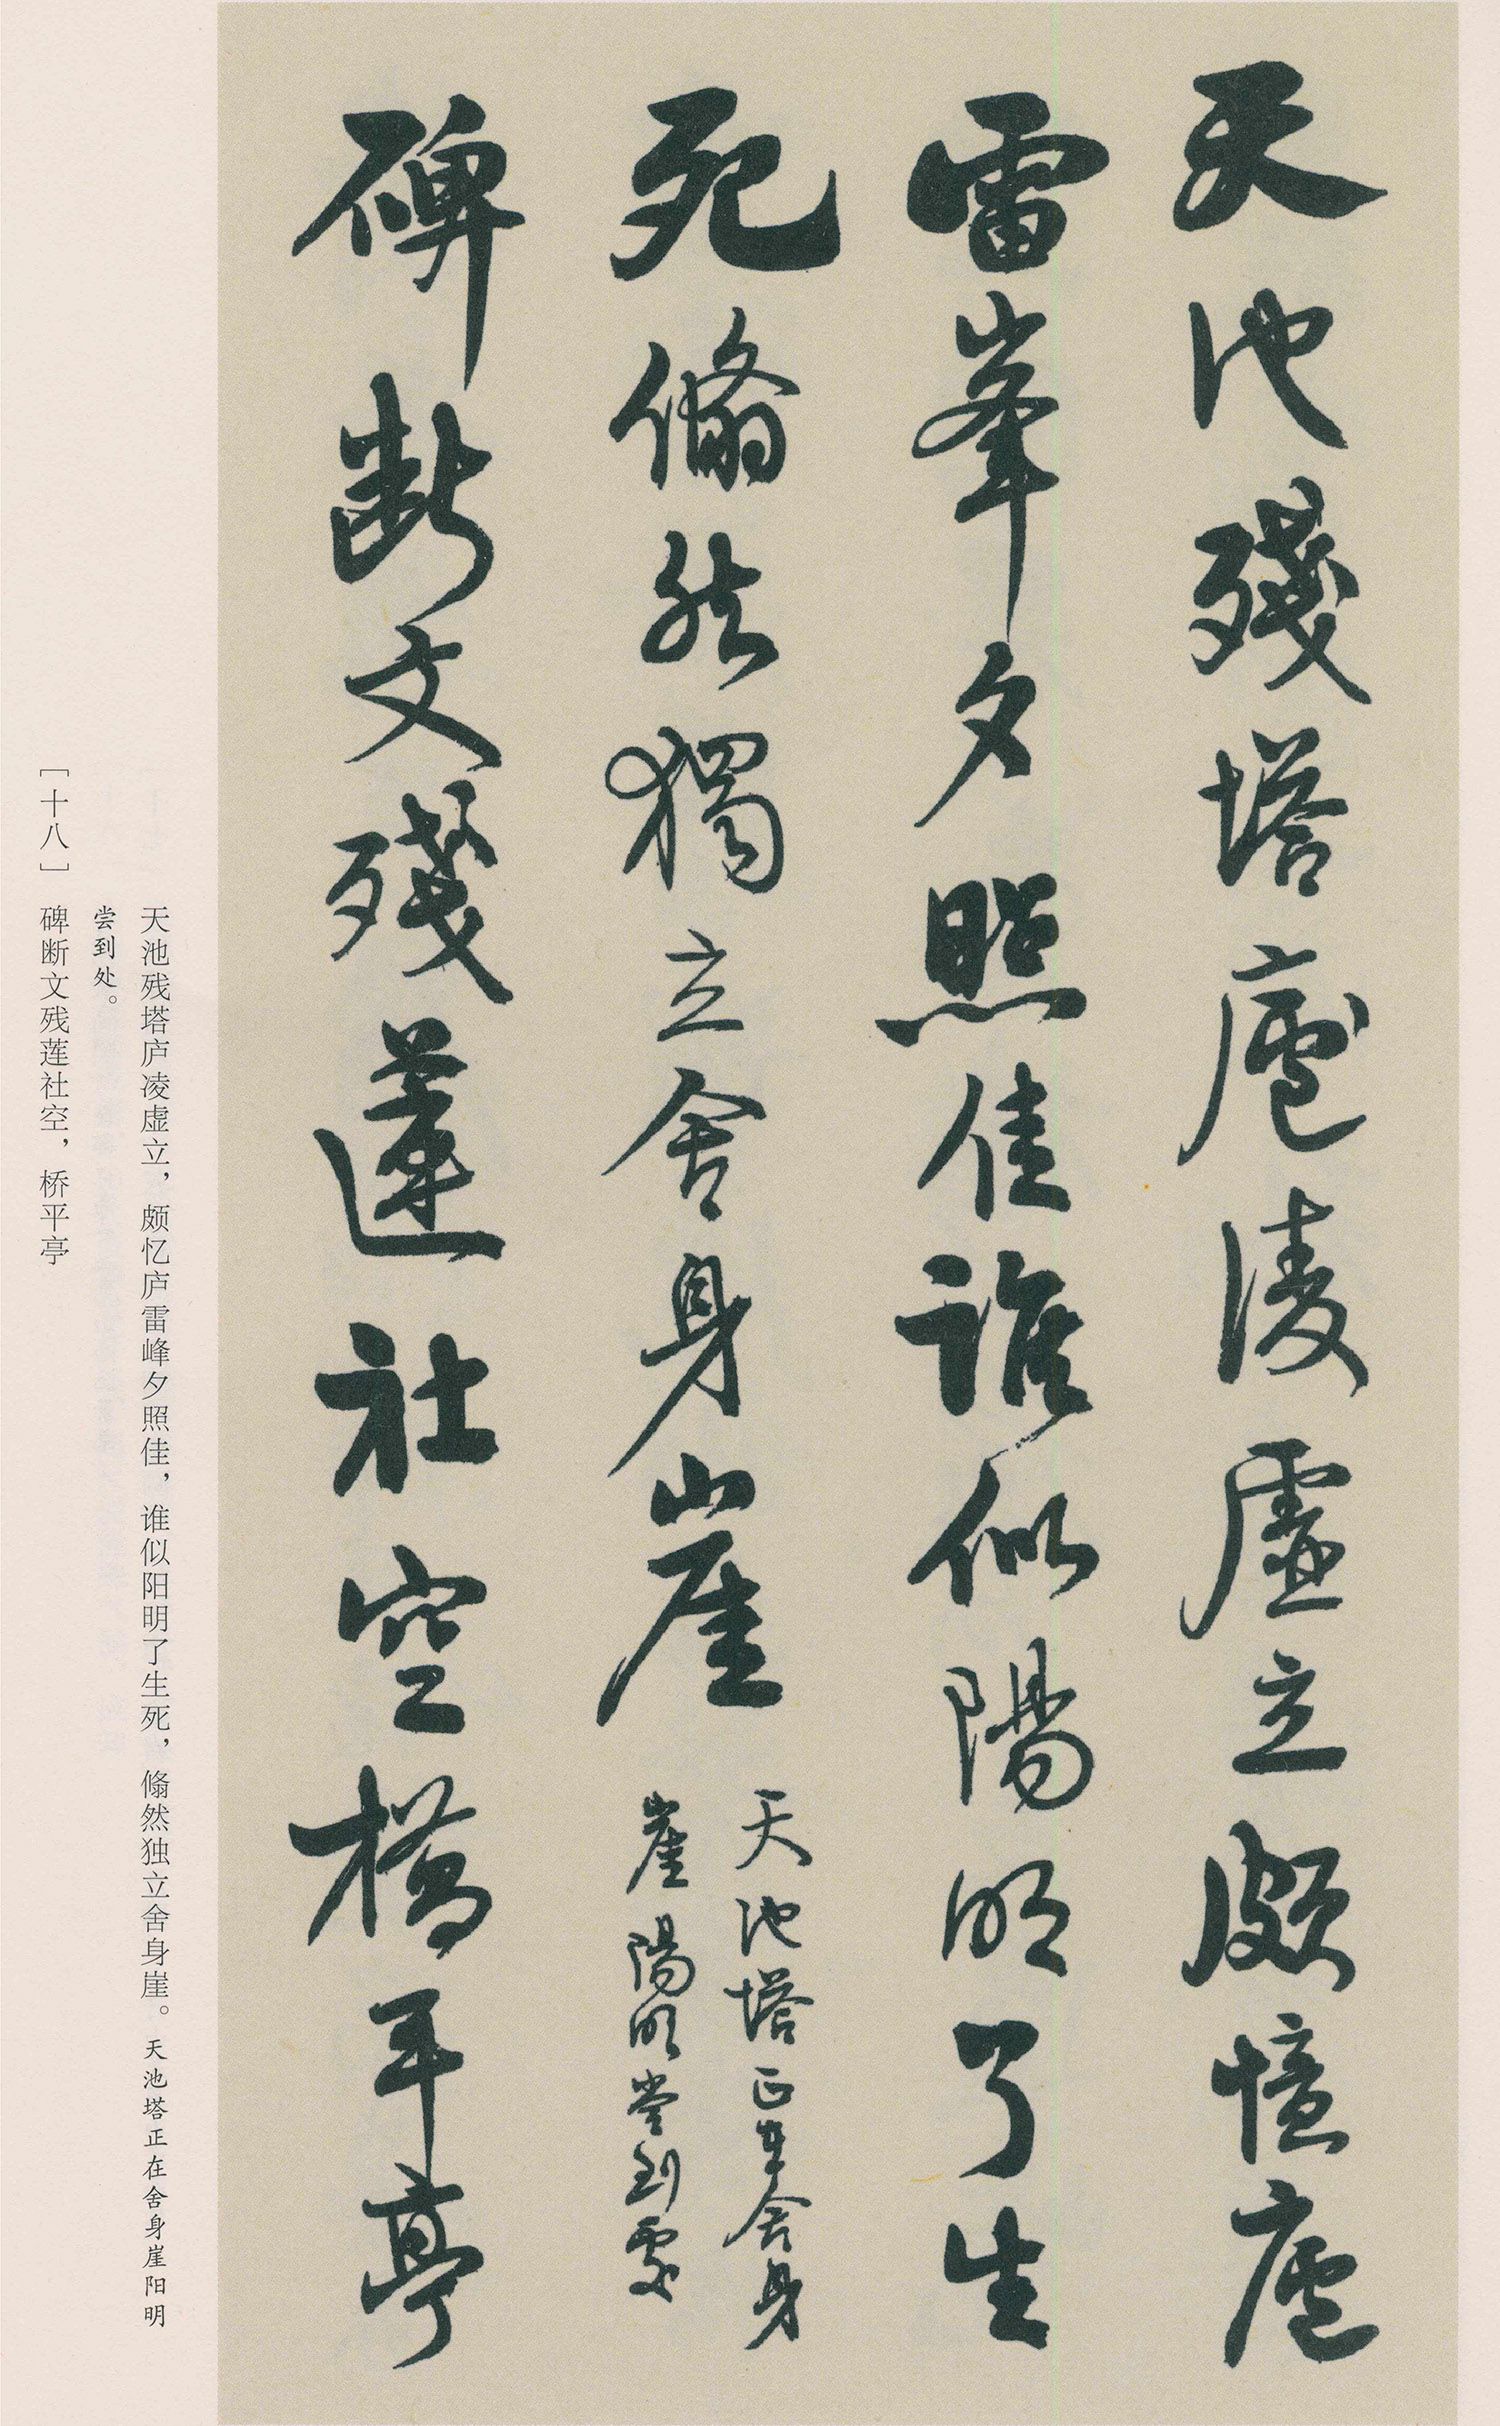 天池殘塔廬凌虛立頗憶廬
雷峯夕照佳誰似陽明了生
死翛然獨立舍身崖
天池塔正在舍身
崖陽明嘗到處
碑斷文殘蓮社空橋平亭
天池残塔庐凌虚立，颇忆庐雷峰夕照佳，谁似阳明了生死，翛然独立舍身崖。天池塔正在舍身崖阳明
尝到处。
［十八］ 碑断文残莲社空，桥平亭